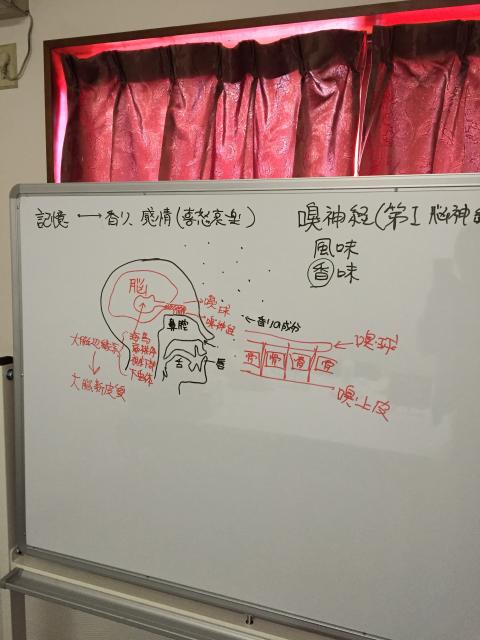 記憶 ←→ 香り、感情(喜怒哀楽)
嗅神経(第Ⅰ脳神経
風味
香味
脳
嗅球
嗅神経
鼻腔
←香りの成分
嗅球
大脳辺縁系
海馬
扁桃体
視床下部
下垂体
舌
唇
骨 骨 骨 骨
大脳新皮質
嗅上皮